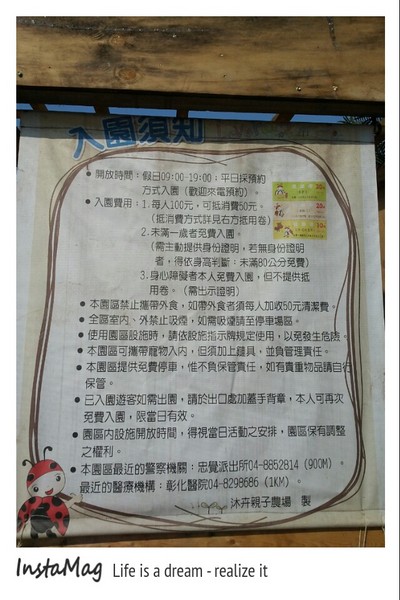 入園須知
開放時間：假日09:00-19:00；平日採預約
方式入園（歡迎來電預約）。
入園費用：1.每人100元，可抵消費50元。
（抵消費方式詳見右方抵用卷）
2.未滿一歲者免費入園。
（需主動提供身份證明，若無身份證明
者，得依身高判斷：未滿80公分免費）
3.身心障礙者本人免費入園，但不提供抵
用卷。（需出示證明）
本園區禁止攜帶外食，如帶外食者須每人加收50元清潔費。
全區室內、外禁止吸煙，如需吸煙請至停車場區。
使用園區設施時，請依設施指示牌規定使用，以免發生危險。
本園區可攜帶寵物入內，但須加上鏈具，並負管理責任。
本園區提供免費停車，惟不負保管責任，如有貴重物品請自行
保管。
已入園遊客如需出園，請於出口處加蓋手背章，本人可再次
免費入園，限當日有效。
園區內設施開放時間，得視當日活動之安排，園區保有調整
之權利。
本園區最近的警察機關：忠覺派出所04-8852814（900M）。
最近的醫療機構：彰化醫院04-8298686（1KM）。
沐卉親子農場 製
InstaMag Life is a dream - realize it